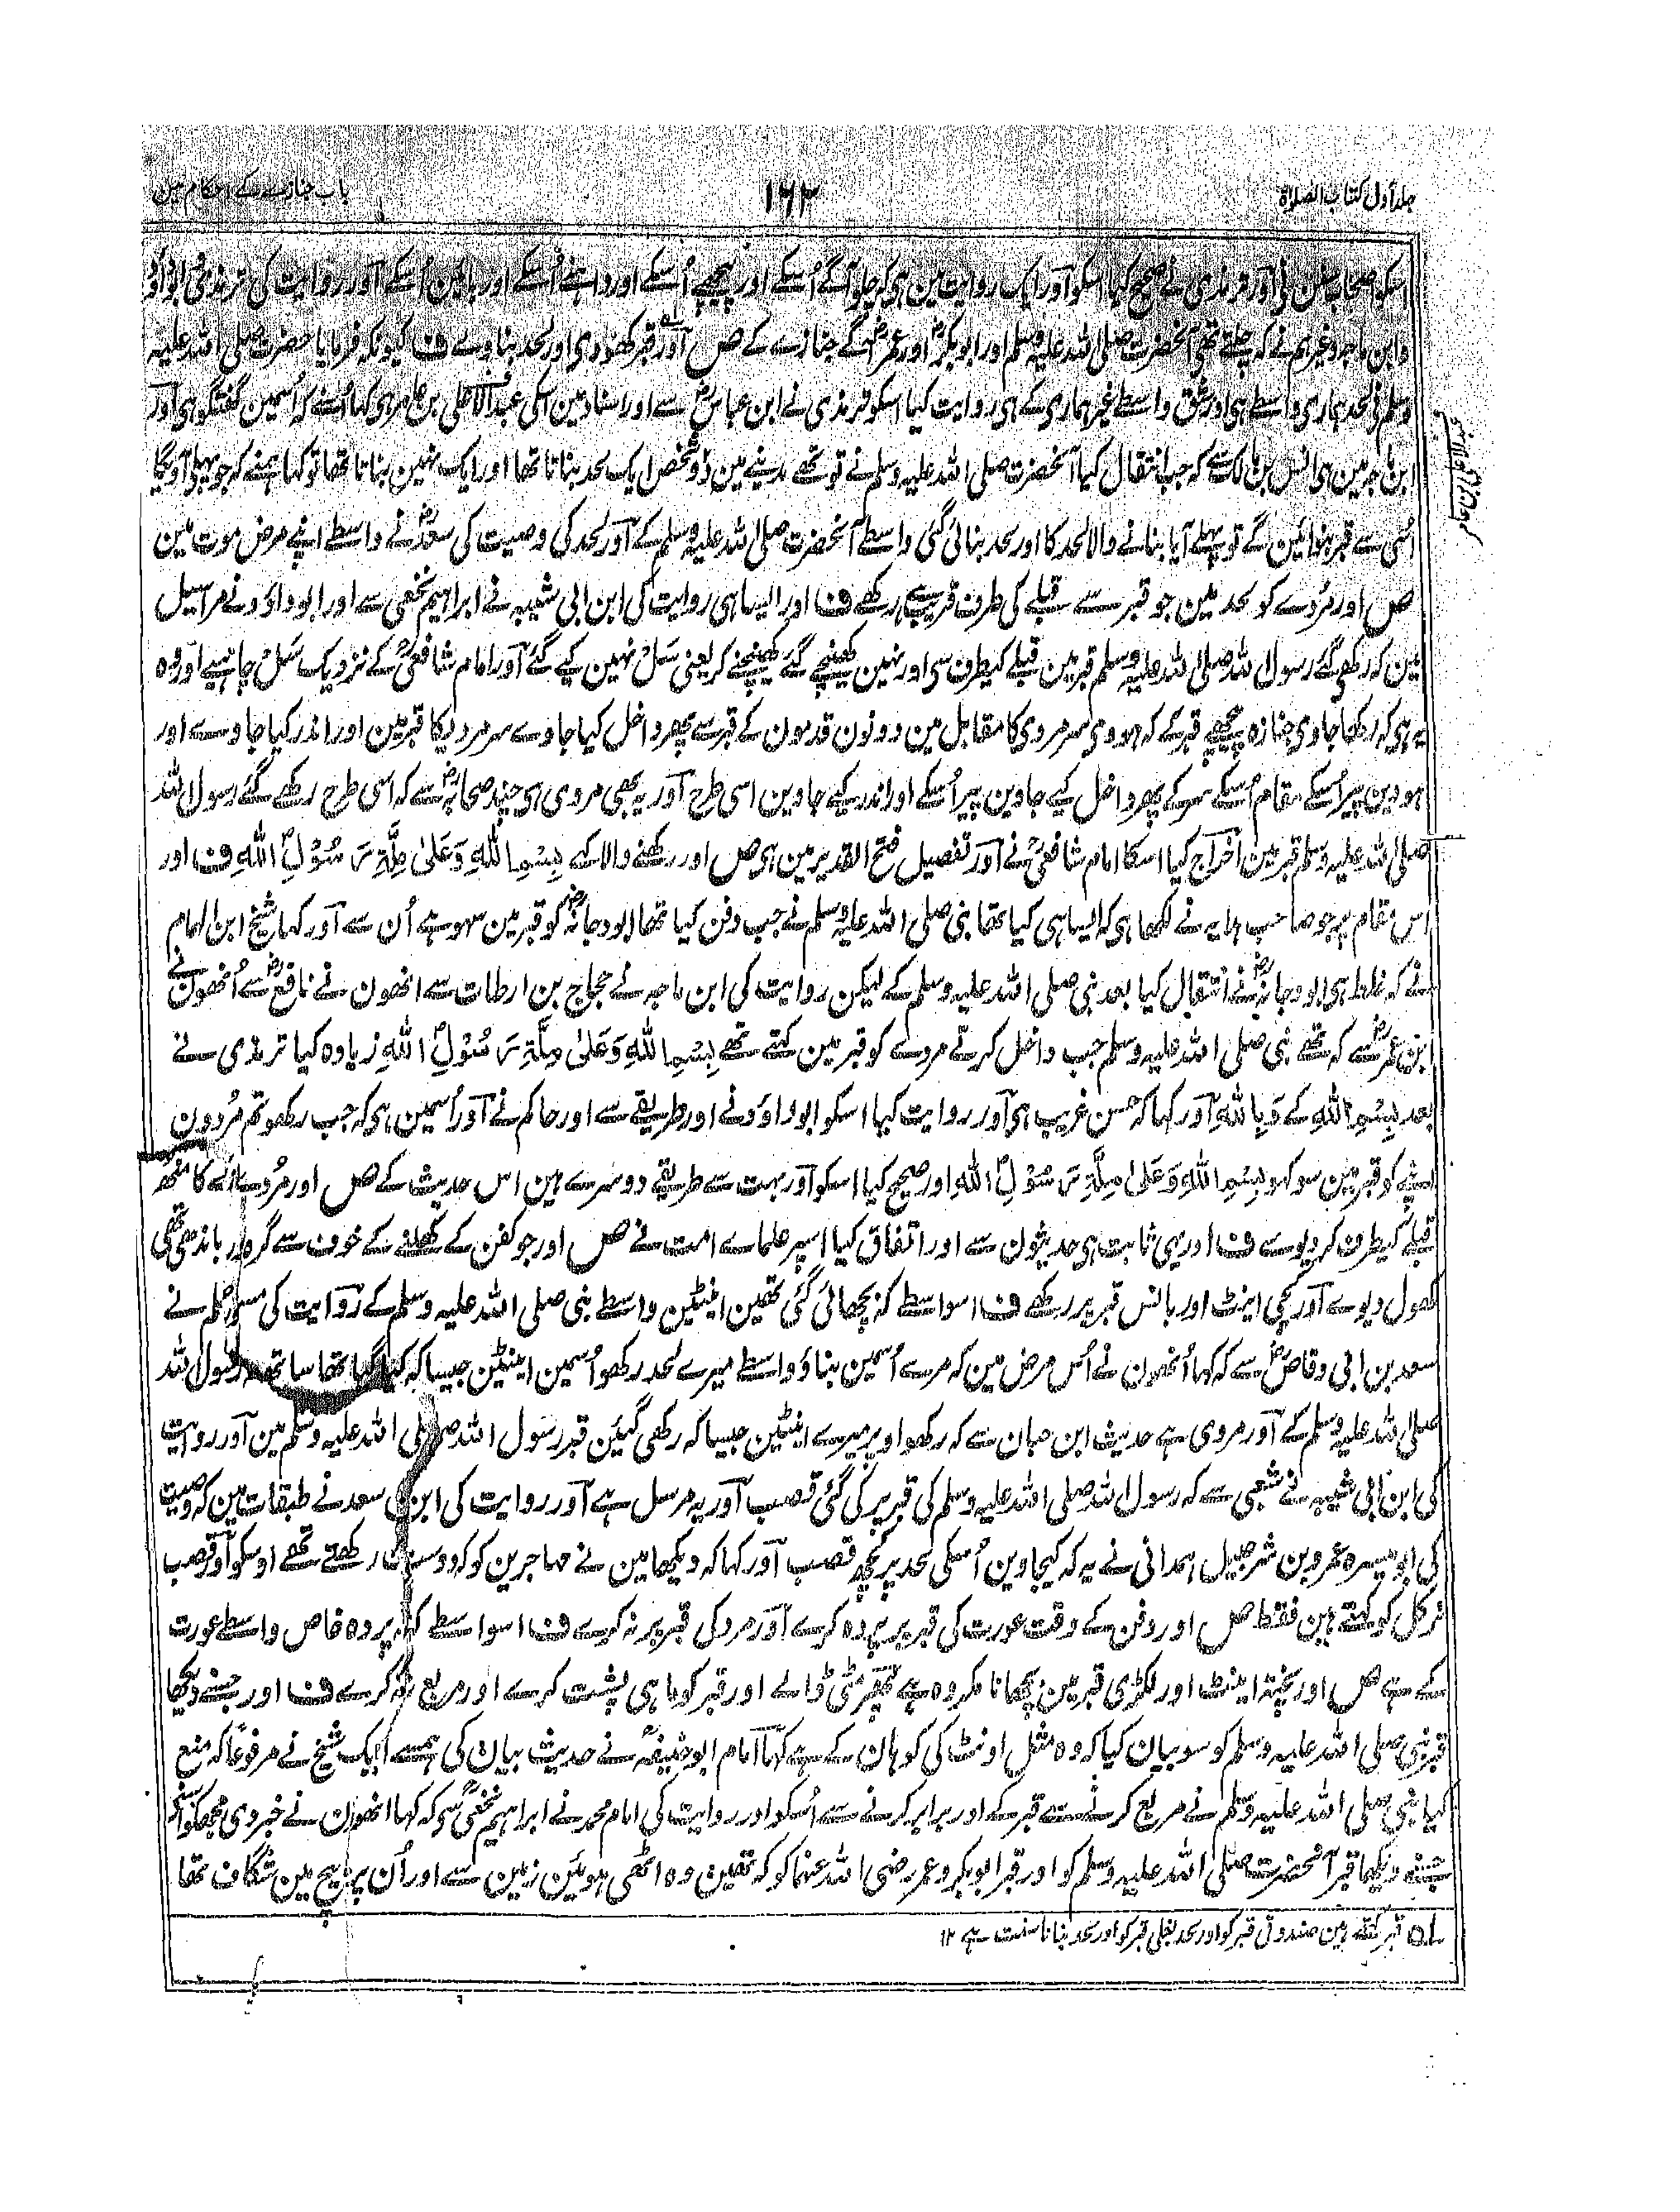 جلد اول کتاب الصلوٰة
۱۶۳
باب جنازے کے احکام مین
سکو اصحاب سنن نی اور ترمذی نے صحیح کہا اسکو اور ایک روایت مین ہی کہ چلو آگے اُسکے اور پیچھے اُسکے اور داہنے اُسکے اور بائین اُسکے اور روایت کی ترمذی ابو داؤد
وابن ماجہ وغیرہم نے کہ چلتے تھی آنحضرت صلی اللہ علیہ وسلم اور ابوبکرؓ اور عمرؓ آگے جنازے کے ص اور قبر کھودی اور لحد بناوے ف کیونکہ فرمایا حضرت صلی اللہ علیہ
وسلم نی لحد ہماری واسطے ہی اور شق واسطے غیر ہماری کے ہی روایت کیا اسکو ترمذی نے ابن عباسؓ سے اور اسناد مین اسکی عبد الاعلی بن عامر ہی کہا کہ اُسمین گفتگو ہی اور
ابن ماجہ مین ہی انس بن مالکؓ سے کہ جب انتقال کیا آنحضرت صلی اللہ علیہ وسلم نے تو تھے مدینے مین دو شخص ایک لحد بناتا تھا اور ایک نہین بناتا تھا تو کہا ہمنے کہ جو پہلے آویگا
اُسی سے قبر بنوائین گے تو پہلے آیا بنانے والا لحد کا اور لحد بنائی گئی واسطے آنحضرت صلی اللہ علیہ وسلم کے اور لحد کی وصیت کی سعدؓ نے واسطے اپنے مرض موت مین
ص اور مُردے کو لحد مین جو قبر سے قبلے کی طرف قریب ہی رکھے ف اور ایسا ہی روایت کی ابن ابی شیبہ نے ابراہیم نخعی سے اور ابوداؤد نے مراسیل
مین کہ رکھی گئے رسول اللہ صلی اللہ علیہ وسلم قبر مین قبلے کیطرف سی اور نہین کھینچے گئے کھینچنے کر یعنی سَل نہین کیے گئے اور امام شافعیؒ کے نزدیک سَل چاہیے اور وہ
یہ ہی کہ رکھا جاوی جنازہ پیچھے قبر کے کہ ہووی سر مردی کا مقابل مین دونون قدمون کے قبر سے پھر داخل کیا جاوے سر مردیکا قبر مین اور اندر کیا جاوے اور
ہووین پیر اُسکے مقام اُسکے سر کے پھر داخل کیے جاوین پیر اُسکے اور اندر کیے جاوین اسی طرح اور یہ بھی مروی ہی چند صحابہؓ سے کہ اسی طرح رکھے گئے رسول اللہ
صلی اللہ علیہ وسلم قبر مین اخراج کیا اسکا امام شافعیؒ نے اور تفصیل فتح القدیر مین ہی ص اور رکھنے والا کہے بِسْمِ اللّٰہِ وَعَلٰی مِلَّةِ رَسُوْلِ اللّٰہِ ف اور
اس مقام پر جو صاحب ہدایہ نے لکھا ہی کہ ایسا ہی کیا تھا نبی صلی اللہ علیہ وسلم نے جب دفن کیا تھا ابو دجانہؓ کو قبر مین سہو ہے اُن سے اور کہا شیخ ابن الہمام
نے کہ غلط ہی ابو دجانہؓ نے انتقال کیا بعد نبی صلی اللہ علیہ وسلم کے لیکن روایت کی ابن ماجہ نے حجاج بن ارطات سے انھون نے نافعؓ سے اُنھون نے
ابن عمرؓ سے کہ تھے نبی صلی اللہ علیہ وسلم جب داخل کرتے مردے کو قبر مین کہتے تھے بِسْمِ اللّٰہِ وَعَلٰی مِلَّةِ رَسُوْلِ اللّٰہِ زیادہ کیا ترمذی نے
بعد بِسْمِ اللّٰہِ کے وَبِاللّٰہِ اور کہا کہ حسن غریب ہی اور روایت کیا اسکو ابوداؤد نے اور طریقے سے اور حاکم نے اور اُسمین ہی کہ جب رکھو تم مُردون
اپنے کو قبر مین سو کہو بِسْمِ اللّٰہِ وَعَلٰی مِلَّةِ رَسُوْلِ اللّٰہِ اور صحیح کہا اسکو اور بہت سے طریقے دوسرے ہین اس حدیث کے ص اور مُردے کا منھ
قبلے کیطرف کر دیوے ف اور یہی ثابت ہی حدیثون سے اور اتفاق کیا اسپر علماے امت نے ص اور جو کفن کے کھلنے کے خوف سے گرہ باندھی تھی
کھول دیوے اور کچی اینٹ اور بانس قبر پر رکھے ف اسواسطے کہ بچھائی گئی تھین اینٹین واسطے نبی صلی اللہ علیہ وسلم کے روایت کی مسلم نے
سعد بن ابی وقاصؓ سے کہ کہا اُنھون نے اُس مرض مین کہ مرے اُسمین بناؤ واسطے میرے لحد رکھو اُسمین اینٹین جیسا کہ کیا گیا تھا ساتھ رسول اللہ
صلی اللہ علیہ وسلم کے اور مروی ہے حدیث ابن حبان سے کہ رکھو اوپر میرے اینٹین جیسا کہ رکھی گئین قبر رسول اللہ صلی اللہ علیہ وسلم مین اور روایت
کی ابن ابی شیبہ نے شعبی سے کہ رسول اللہ صلی اللہ علیہ وسلم کی قبر پر کی گئی قصب اور یہ مرسل ہے اور روایت کی ابن سعد نے طبقات مین کہ وصیت
کی ابو میسرہ عمرو بن شرحبیل ہمدانی نے یہ کہ کیجاوین اُسکی لحد پر کچھ قصب اور کہا کہ دیکھا مین نے مہاجرین کو کہ دوست رکھتے تھے اوسکو اور قصب
نرکل کو کہتے ہین فقط ص اور دفن کے وقت عورت کی قبر پر پردہ کرے اور مرد کی قبر پر نہ کرے ف اسواسطے کہ پردہ خاص واسطے عورت
کے ہے ص اور پختہ اینٹ اور لکڑی قبر مین بچھانا مکروہ ہے پھر مٹی ڈالے اور قبر کو ماہی پشت کرے اور مربع نہ کرے ف اور جسنے دیکھا
قبر نبی صلی اللہ علیہ وسلم کو سو بیان کیا کہ وہ مثل اونٹ کی کوہان کے ہے کہا امام ابو حنیفہؒ نے حدیث بیان کی ہمسے ایک شیخ نے مرفوعاً کہ منع
کیا نبی صلی اللہ علیہ وسلم نے مربع کرنے سے قبر کے اور برابر کرنے سے اُسکو اور روایت کی امام محمد نے ابراہیم نخعیؒ سی کہ کہا انھون نے خبر دی مجھکو اُسنے
جسنے دیکھا قبر آنحضرت صلی اللہ علیہ وسلم کو اور قبر ابوبکر و عمر رضی اللہ عنہما کو کہ تھین وہ اٹھی ہوئین زمین سے اور اُن پر بیچ مین شگاف تھا
لہ قبر کہتے ہین صندوقی قبر کو اور لحد بغلی قبر کو اور لحد بنانا سنت ہے ۱۲